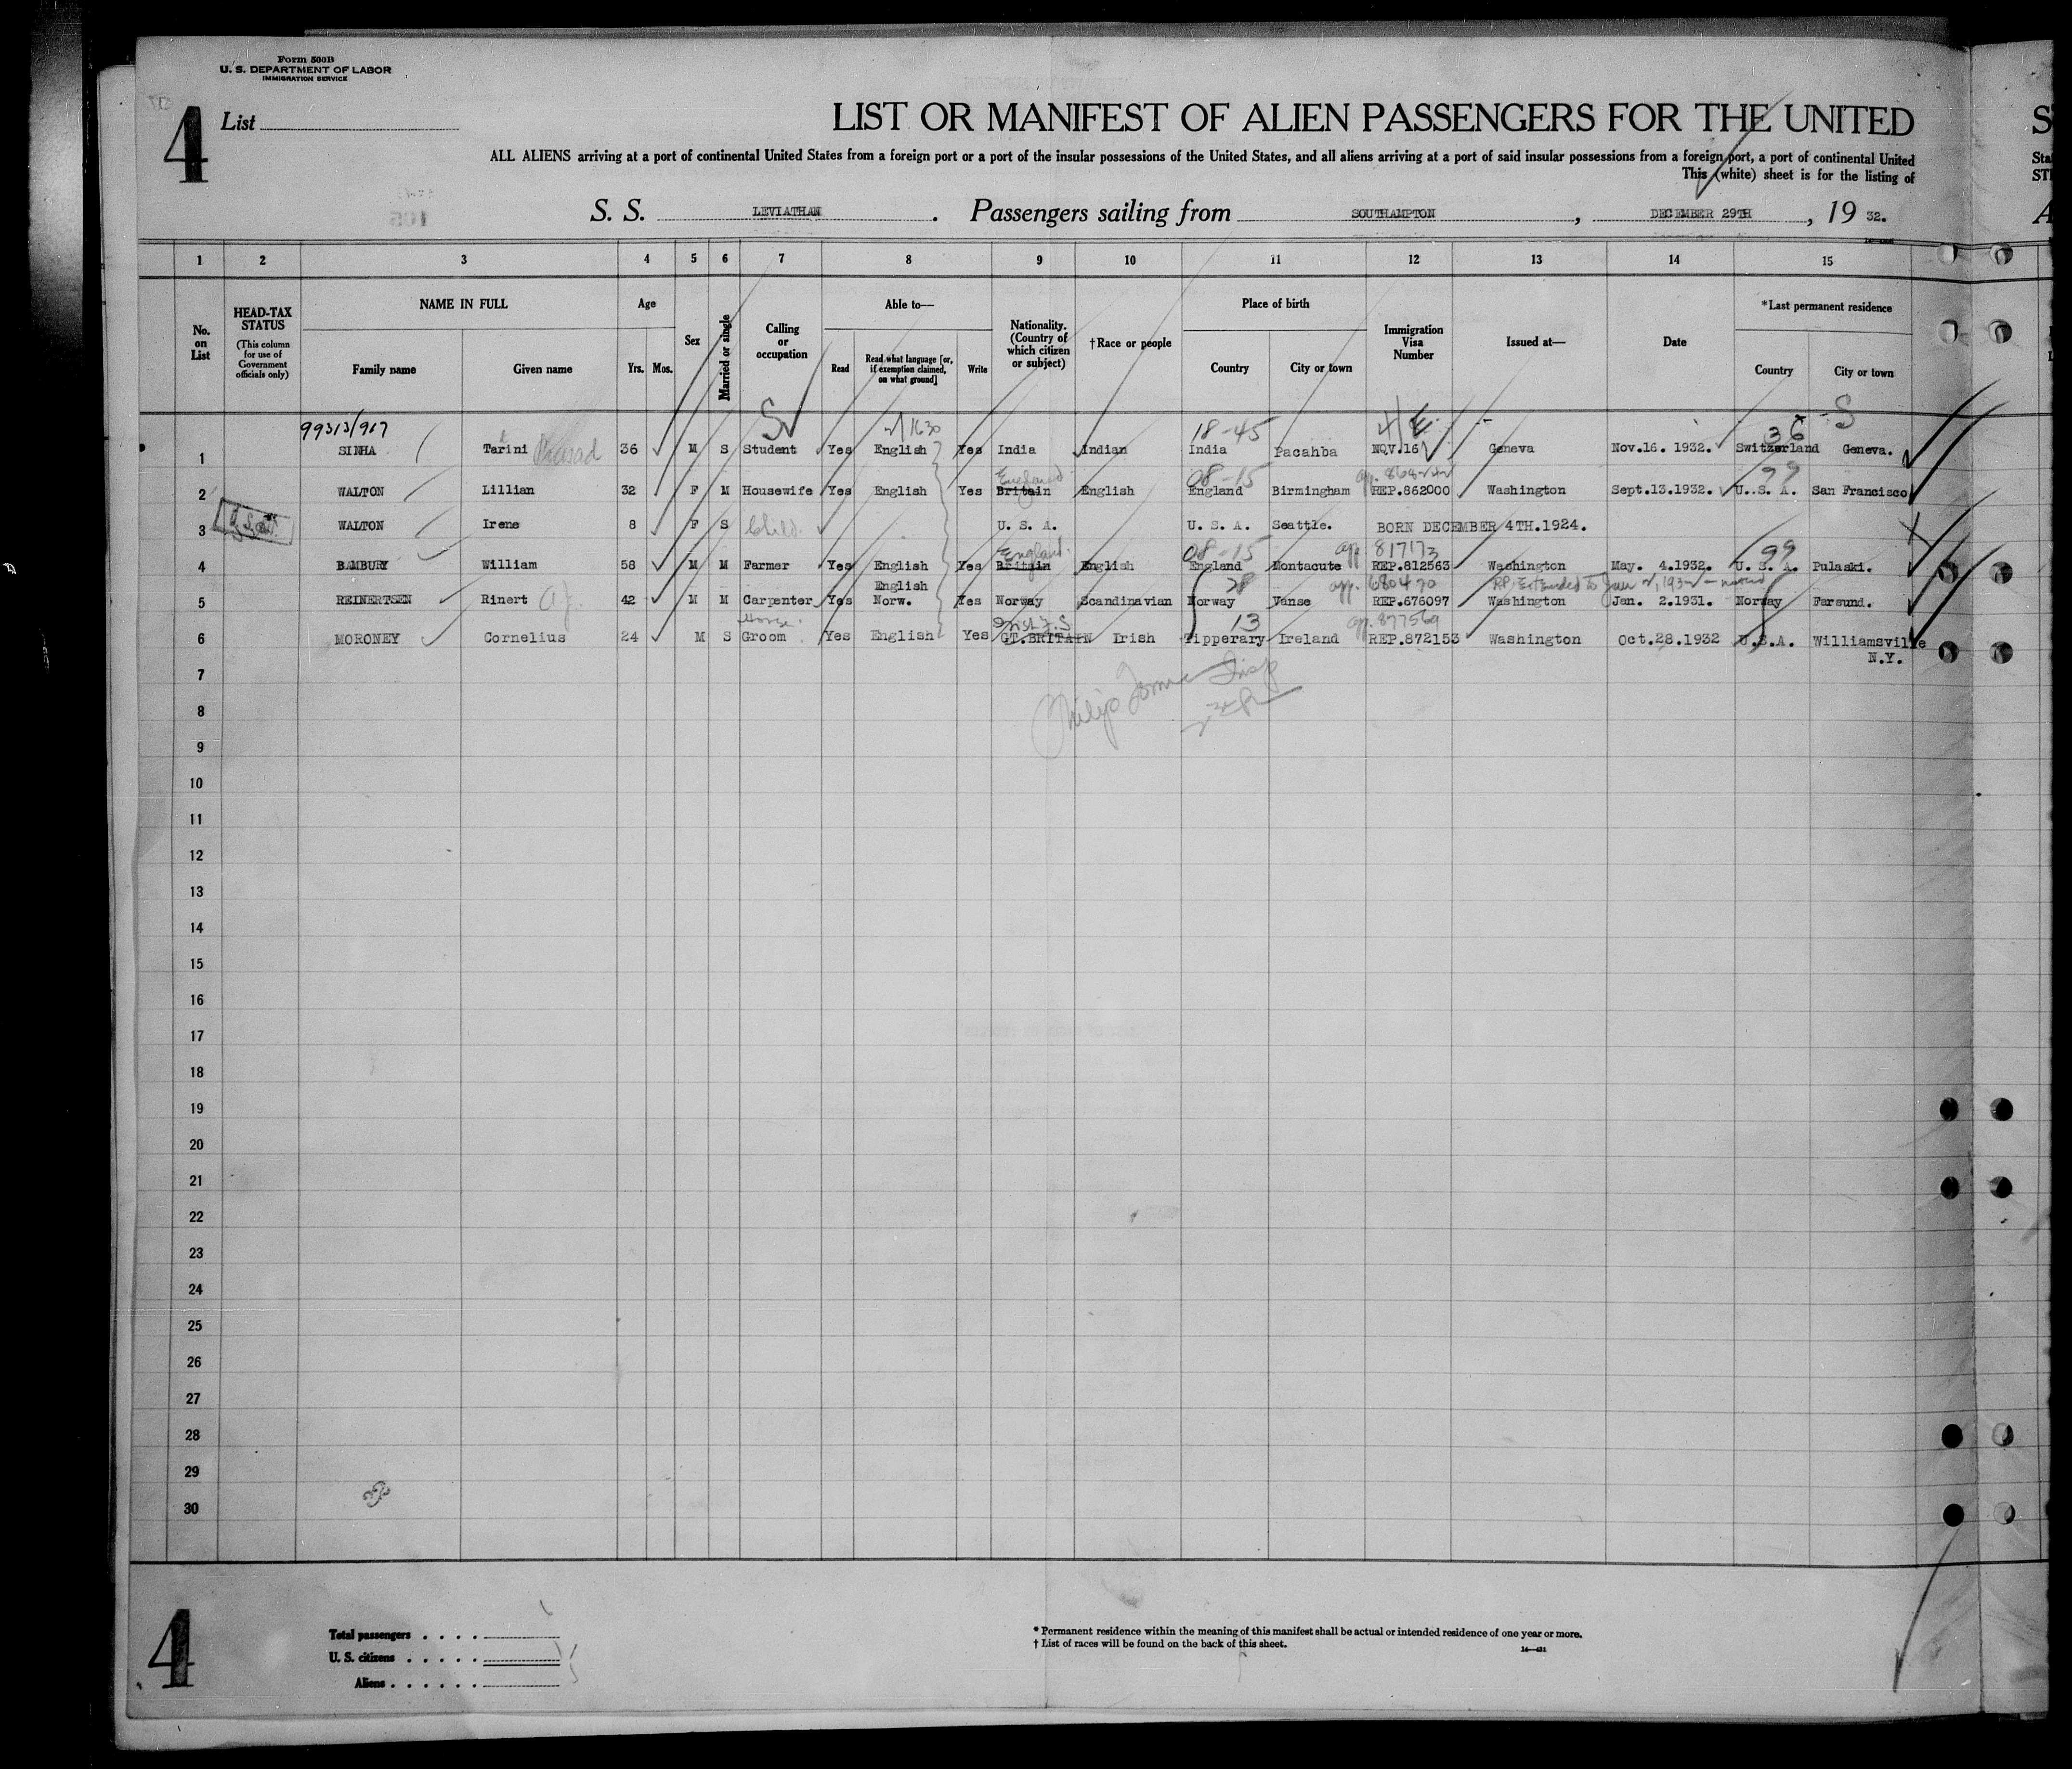 Form 500B
U. S. DEPARTMENT OF LABOR
IMMIGRATION SERVICE
4 List
LIST OR MANIFEST OF ALIEN PASSENGERS FOR THE UNITED
ALL ALIENS arriving at a port of continental United States from a foreign port or a port of the insular possessions of the United States, and all aliens arriving at a port of said insular possessions from a foreign port, a port of continental United
This (white) sheet is for the listing of
S. S. LEVIATHAN. Passengers sailing from SOUTHAMPTON, DECEMBER 29TH, 19 32.
1 2 3 4 5 6 7 8 9 10 11 12 13 14 15
No. on List
HEAD-TAX STATUS (This column for use of Government officials only)
NAME IN FULL
Family name Given name
Age
Yrs. Mos.
Sex
Married or single
Calling or occupation
Able to—
Read Read what language [or, if exemption claimed, on what ground] Write
Nationality. (Country of which citizen or subject)
†Race or people
Place of birth
Country City or town
Immigration Visa Number
Issued at—
Date
*Last permanent residence
Country City or town
99313/917 S 1630 18-45 4/E 36 S
1 SINHA Tarini Prasad 36 M S Student Yes English Yes India Indian India Pacahba NOV.16 Geneva Nov.16. 1932. Switzerland Geneva.
England 08-15 99
2 WALTON Lillian 32 F M Housewife Yes English Yes Britain English England Birmingham REP.862000 Washington Sept.13.1932. U.S. A. San Francisco
3 WALTON Irene 8 F S Child U. S. A. U. S. A. Seattle. BORN DECEMBER 4TH.1924.
England 08-15 app. 817173 99
4 BAMBURY William 58 M M Farmer Yes English Yes Britain English England Montacute REP.812563 Washington May. 4.1932. U. S. A. Pulaski.
English 28 app. 680470 RP. Extended to Jan 2, 1932
5 REINERTSEN Rinert 42 M M Carpenter Yes Norw. Yes Norway Scandinavian Norway Vanse REP.676097 Washington Jan. 2.1931. Norway Farsund.
Horse Irish F.S 13 app. 877569
6 MORONEY Cornelius 24 M S Groom Yes English Yes GT.BRITAIN Irish Tipperary Ireland REP.872153 Washington Oct.28.1932 U.S.A. Williamsville
N.Y.
7
8
9
10
11
12
13
14
15
16
17
18
19
20
21
22
23
24
25
26
27
28
29
30
4
Total passengers
U. S. citizens
Aliens
* Permanent residence within the meaning of this manifest shall be actual or intended residence of one year or more.
† List of races will be found on the back of this sheet.